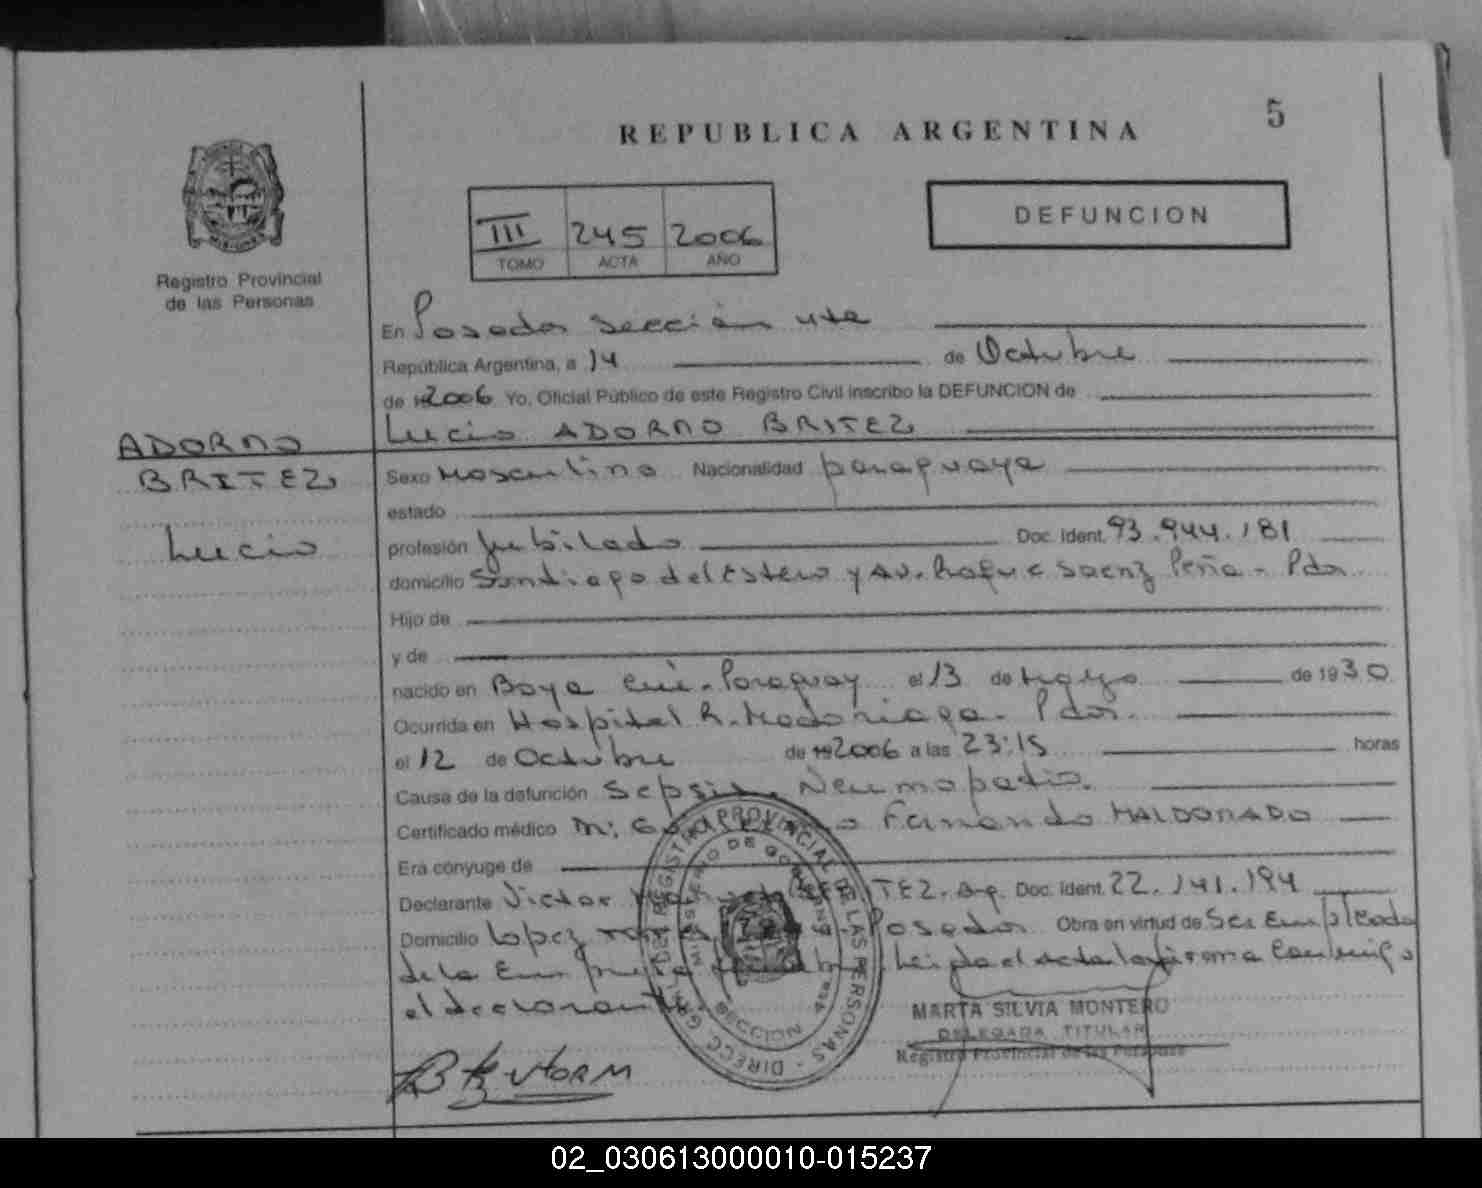 5
REPUBLICA ARGENTINA
DEFUNCION
III 245 2006
TOMO ACTA AÑO
Registro Provincial
de las Personas
En Posadas Sección 4ta
República Argentina, a 14 de Octubre
de 2006 Yo, Oficial Público de este Registro Civil inscribo la DEFUNCION de
Lucio ADORNO BRITEZ
ADORNO
BRITEZ
Lucio
Sexo Masculino Nacionalidad paraguaya
estado
profesión Jubilado Doc. Ident. 93.944.181
domicilio Santiago del Estero y Av. Roque Saenz Peña - Pdas
Hijo de
y de
nacido en Boya Cué - Paraguay el 13 de Mayo de 1930
Ocurrida en Hospital R. Madariaga - Pdas.
el 12 de Octubre de 2006 a las 23:15 horas
Causa de la defunción Sepsis, Neumopatía.
Certificado médico M: Fernando MALDONADO
Era cónyuge de
Declarante Victor BENITEZ - Arg. Doc. Ident. 22.141.194
Domicilio Lopez Posadas Obra en virtud de Ser Empleado
de la Empresa Leída el Acta la firma Conmigo
el declarante
MARTA SILVIA MONTERO
DELEGADA TITULAR
Registro Provincial de las Personas
DIRECC. GRAL. DEL REGISTRO PROVINCIAL DE LAS PERSONAS
MINISTERIO DE GOBIERNO
SECCION
02_030613000010-015237